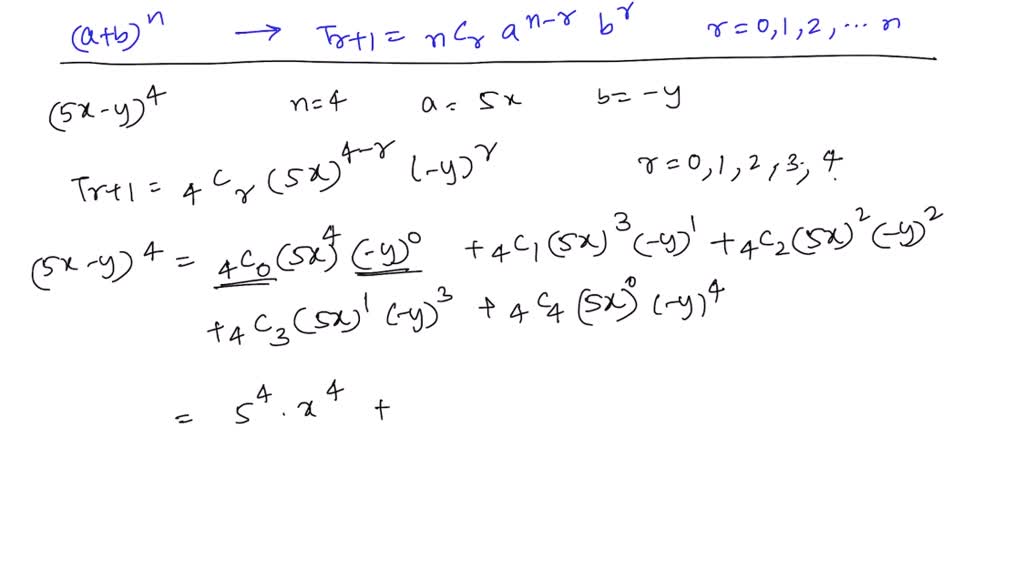 (a+b)^n → Tr+1 = nCr a^n-r b^r r=0,1,2,... n
(5x-y)^4 n=4 a= 5x b= -y
Tr+1 = 4Cr (5x)^4-r (-y)^r r=0,1,2,3,4
(5x-y)^4 = 4C0(5x)^4 (-y)^0 +4C1(5x)^3(-y)^1 +4C2(5x)^2(-y)^2
+4C3(5x)^1(-y)^3 + 4C4(5x)^0(-y)^4
= 5^4 . x^4 +